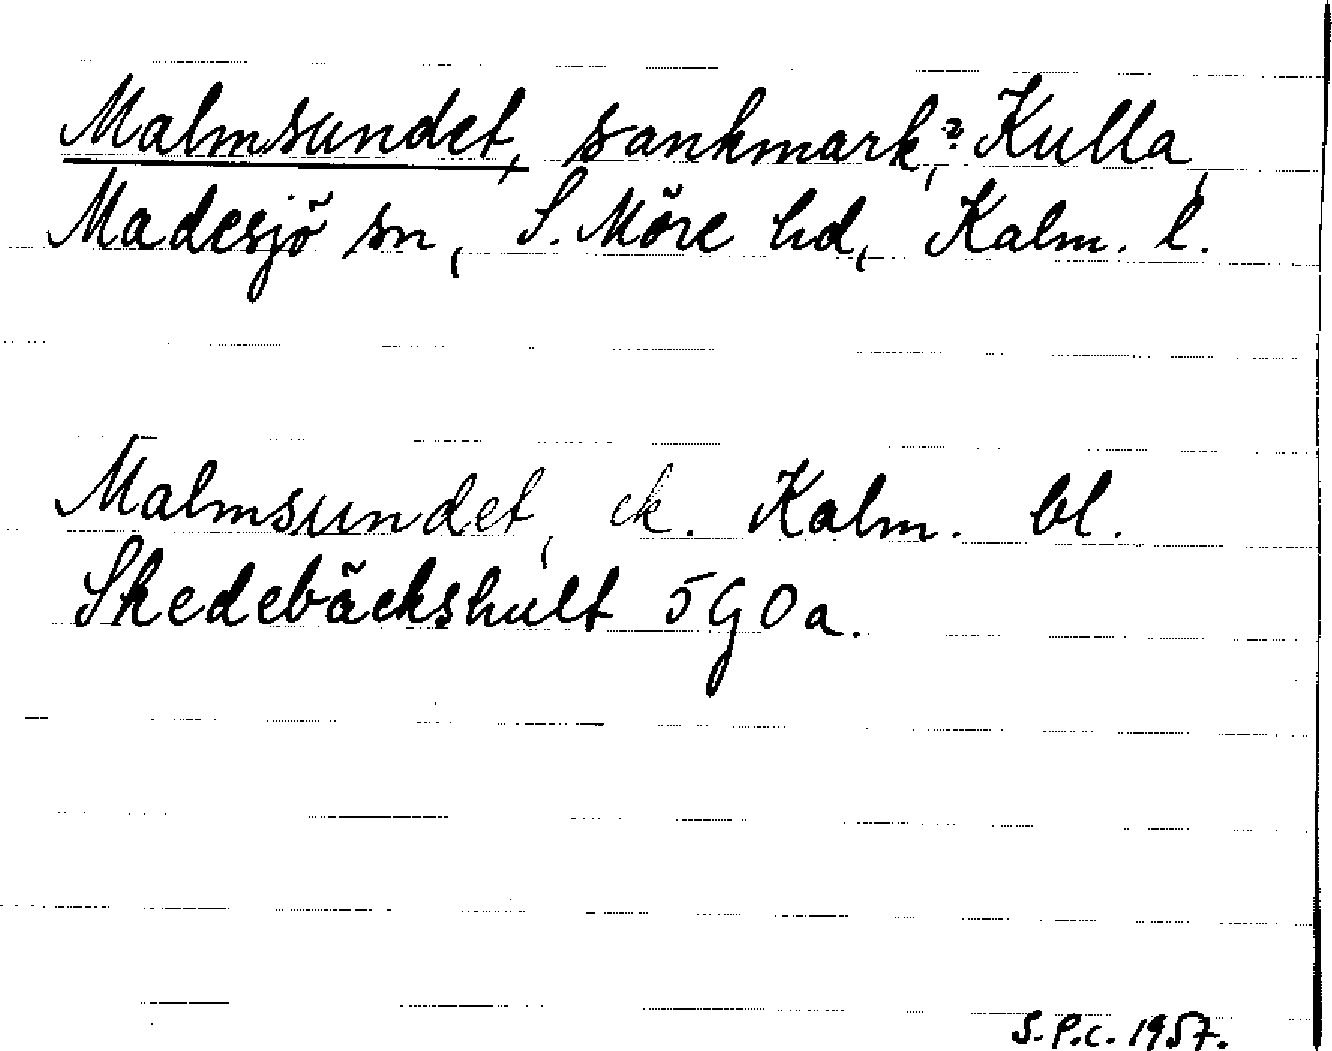 Malmsundet, sankmark,? Kulla,
Madesjö sn, S. Möre hd, Kalm. l.
Malmsundet, ek. Kalm. bl.
Skedebäckshult 5G0a.
S.P.C. 1957.